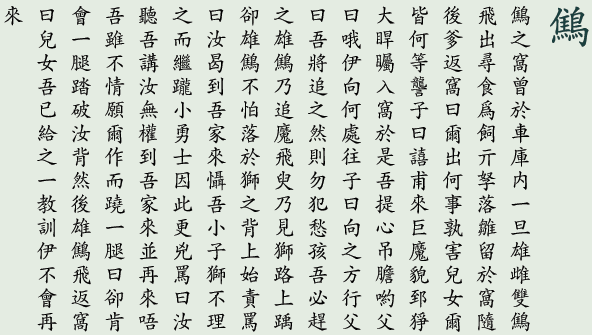 鷦
鷦之窩曾於車庫內一旦雄雌雙鷦
飛出尋食爲飼亓孥落雛留於窩隨
後爹返窩曰爾出何事孰害兒女爾
皆何等讋子曰譆甫來巨魔貌郅猙
大睅矚入窩於是吾提心吊膽喲父
曰哦伊向何處往子曰向之方行父
曰吾將追之然則勿犯愁孩吾必趕
之雄鷦乃追魔飛臾乃見獅路上踽
卻雄鷦不怕落於獅之背上始責罵
曰汝曷到吾家來懾吾小子獅不理
之而繼躘小勇士因此更兇罵曰汝
聽吾講汝無權到吾家來並再來唔
吾雖不情願爾作而蹺一腿曰卻肯
會一腿踏破汝背然後雄鷦飛返窩
曰兒女吾已給之一教訓伊不會再
來